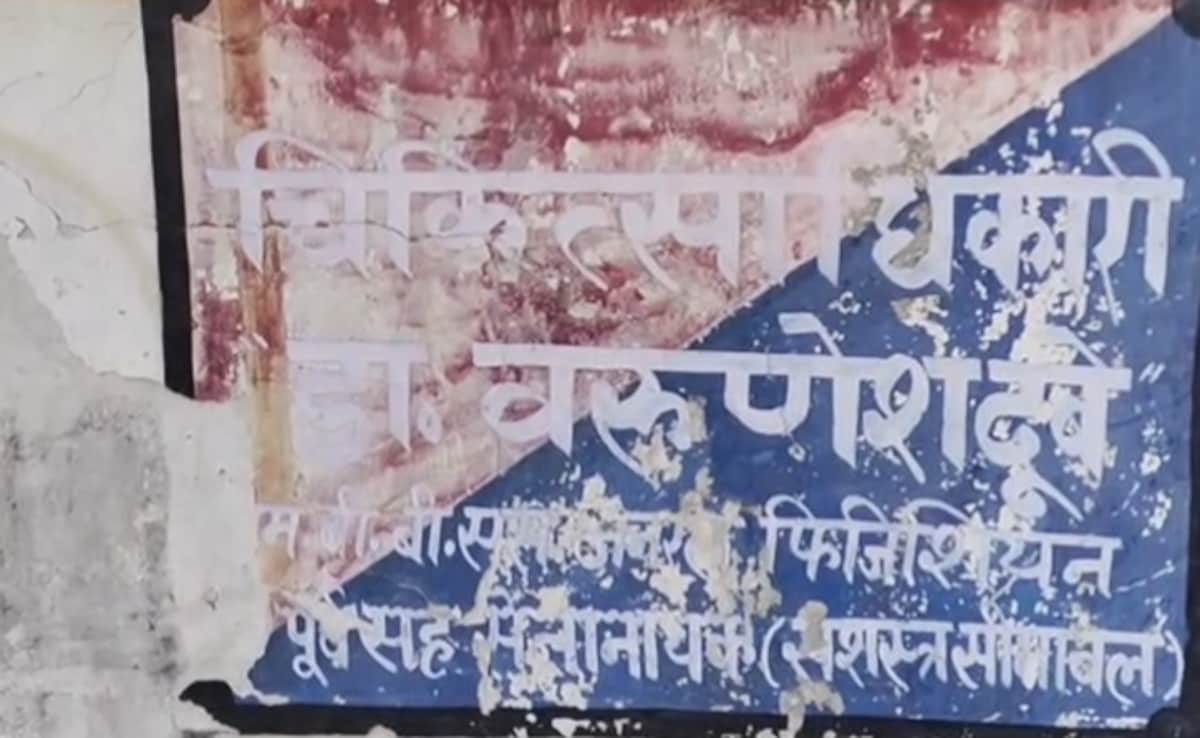 चिकित्साधिकारी
डा. वरुणेश दूबे "
एम.बी.बी.एस. जनरल फिजिशियन
पूर्व सह सेनानायक (सशस्त्र सीमा बल)